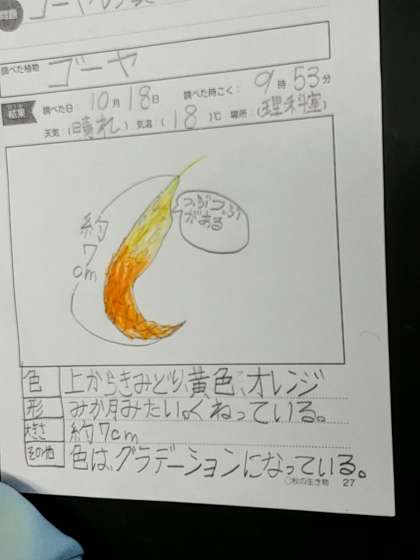 調べた植物 ゴーヤ
結果 調べた日：10月18日 調べた時こく：9時53分
天気（晴れ） 気温：（18）℃ 場所：（理科室）
つぶつぶ
がある
約
7
cm
色 上からきみどり、黄色、オレンジ
形 みか月みたい。くねっている。
大きさ 約7cm
その他 色は、グラデーションになっている。
○秋の生き物 27